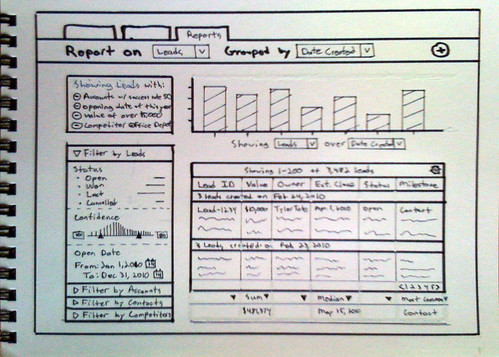 Reports
Report on Leads V Grouped by Date Created V
Showing Leads with:
Accounts w/ success rate 50
opening date of this year
value of over $5,000
Competitor Office Depot
Showing Leads V over Date Created V
Filter by Leads
Status
- Open
- Won
- Lost
- Cancelled
Confidence
Open Date
From: Jan 1, 2010
To: Dec 31, 2010
Filter by Accounts
Filter by Contacts
Filter by Competitors
Showing 1-200 of 3,482 leads
Lead ID Value Owner Est. Close Status Milestone
3 leads created on Feb 24, 2010
Lead-1234 $10,000 Tyler Tate Apr 1, 2010 Open Contact
Leads created on Feb 23, 2010
<12345>
Sum Median Most Common
$481,374 May 15, 2010 Contact